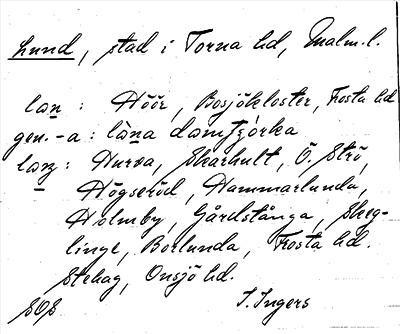 Lund, stad i Torna hd, Malm.l.
lan : Höör, Bosjökloster, Frosta hd
gen. -a : làna domȶȷórka
lanz : Hurva, Skarhult, Ö. Strö,
Högseröd, Hammarlunda,
Holmby, Gårdstånga, Skeg-
linge, Borlunda, Frosta hd.
Stehag, Onsjö hd.
SOS I. Ingers